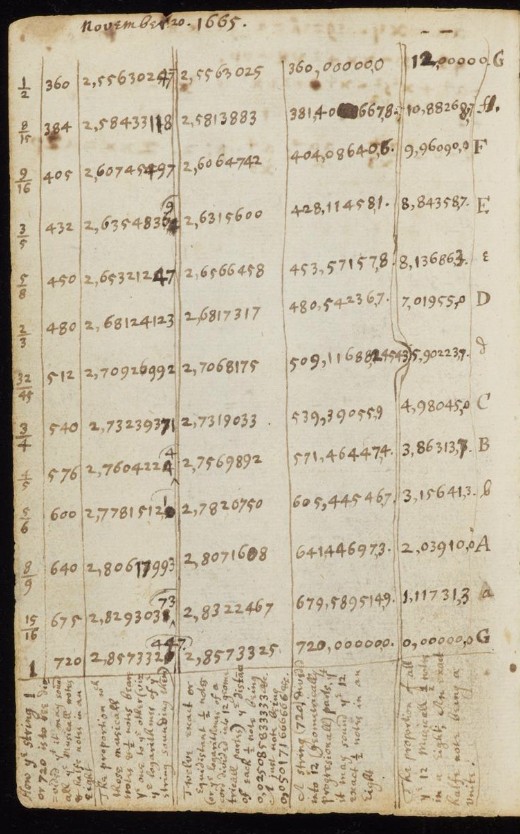 November 20. 1665.
1/2 360 2,5563024 2,5563025 360,000000 12,00000 G
8/15 384 2,58433118 2,5813883 381,40 6678. 10,88268
9/16 405 2,60745497 2,6064742 404,086406. 9,96090,0 F
3/5 432 2,6354836 2,6315600 428,114581. 8,843587. E
5/8 450 2,65321247 2,6566458 453,571578. 8,136863. ε
2/3 480 2,68124123 2,6817317 480,542367. 7,01955,0 D
32/45 512 2,70926992 2,7068175 509,116882 5,902237.
3/4 540 2,73239371 2,7319033 539,390559 4,98045,0 C
4/5 576 2,7604224 2,7569892 571,464474. 3,86313, B
5/6 600 2,7781512 2,7820750 605,445467. 3,156413. b
8/9 640 2,80617993 2,8071608 641446973. 2,03910,0 A
15/16 675 2,829303 2,8322467 679,5895149. 1,117313 a
1 720 2,857332 2,8573325 720,000000. 0,00000,0 G
How yͤ string 1
or 720 is to be
it may sound
all yͤ musicall notes
& halfe notes in an
Eight
The proportion of
these musicall
notes & ½ notes being
yͤ logarithmes of yͤ
string sounding them
Twelve exact or
Equidistant ½ notes
logarithmes of a
divided into 12 geome
tricall parts yͤ distance
of each ½ note being
0,025085833333 &c.
A just note being
0,050171666666 &c.
A string (720) divided
into 12 geometrically
progressionall parts, yͭ
it may sound yͤ 12
exact ½ notes in an
Eight.
The proportion of all
yͤ 12 Musicall ½ notes
in an eight. An exact
halfe note being a
Unite.